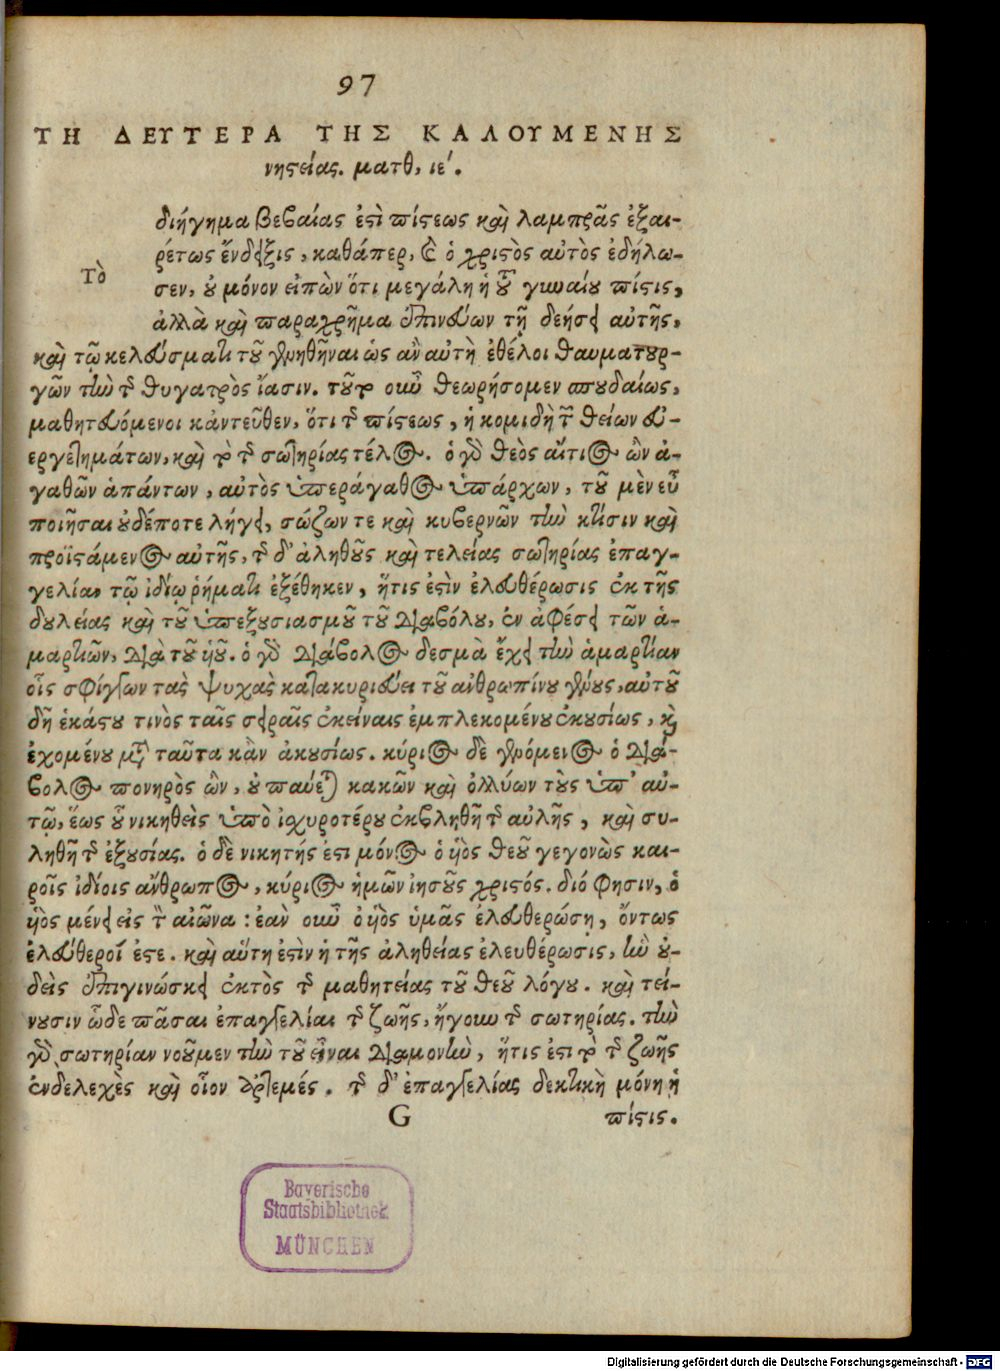 97
ΤΗ ΔΕΥΤΕΡΑ ΤΗΣ ΚΑΛΟΥΜΕΝΗΣ
νηστείας. ματθ, ιε΄.
Τὸ
διήγημα βεβαίας ἐστὶ πίστεως καὶ λαμπρᾶς ἐξαι-
ρέτως ἔνδειξις, καθάπερ, καὶ ὁ χριστὸς αὐτὸς ἐδήλω-
σεν, οὐ μόνον εἰπὼν ὅτι μεγάλη ἡ τοῦ γυναίου πίστις,
ἀλλὰ καὶ παραχρῆμα ἐπινεύων τῇ δεήσει αὐτῆς,
καὶ τῷ κελεύσματι τοῦ γενηθῆναι ὡς ἂν αὐτὴ ἐθέλοι θαυματουρ-
γῶν τὴν τῆς θυγατρὸς ἴασιν. τοῦτο οὖν θεωρήσομεν σπουδαίως,
μαθητευόμενοι κἀντεῦθεν, ὅτι τῆς πίστεως, ἡ κομιδὴ τῶν θείων εὐ-
εργετημάτων, καὶ τὸ τῆς σωτηρίας τέλος. ὁ γὰρ θεὸς αἴτιος ὢν ἀ-
γαθῶν ἁπάντων, αὐτὸς ὑπεράγαθος ὑπάρχων, τοῦ μὲν εὖ
ποιῆσαι οὐδέποτε λήγει, σώζων τε καὶ κυβερνῶν τὴν κτίσιν καὶ
προϊστάμενος αὐτῆς, τῆς δ' ἀληθοῦς καὶ τελείας σωτηρίας ἐπαγ-
γελίαν τῷ ἰδίῳ ῥήματι ἐξέθηκεν, ἥτις ἐστὶν ἐλευθέρωσις ἐκ τῆς
δουλείας καὶ τοῦ ὑπεξουσιασμοῦ τοῦ διαβόλου, ἐν ἀφέσει τῶν ἁ-
μαρτιῶν, διὰ τοῦ ὑοῦ. ὁ γὰρ διάβολος δεσμὰ ἔχει τὴν ἁμαρτίαν
οἷς σφίγγων τὰς ψυχὰς κατακυριεύει τοῦ ἀνθρωπίνου γένους, αὐτοῦ
δὴ ἑκάστου τινὸς ταῖς σειραῖς ἐκείναις ἐμπλεκομένου ἑκουσίως, καὶ
ἐχομένου μετὰ ταῦτα κἂν ἀκουσίως. κύριος δὲ γενόμενος ὁ διά-
βολος πονηρὸς ὢν, οὐ παύεται κακῶν καὶ ὀλλύων τοὺς ὑπ' αὐ-
τῷ, ἕως οὗ νικηθεὶς ὑπὸ ἰσχυροτέρου ἐκβληθῇ τῆς αὐλῆς, καὶ συ-
ληθῇ τῆς ἐξουσίας. ὁ δὲ νικητής ἐστι μόνος ὁ ὑὸς θεοῦ γεγονὼς και-
ροῖς ἰδίοις ἄνθρωπος, κύριος ἡμῶν ἰησοῦς χριστός. διό φησιν, ὁ
ὑὸς μένει εἰς τὸν αἰῶνα: ἐὰν οὖν ὁ ὑὸς ὑμᾶς ἐλευθερώσῃ, ὄντως
ἐλεύθεροί ἐστε. καὶ αὕτη ἐστὶν ἡ τῆς ἀληθείας ἐλευθέρωσις, ἣν οὐ-
δεὶς ἐπιγινώσκει ἐκτὸς τῆς μαθητείας τοῦ θεοῦ λόγου. καὶ τεί-
νουσιν ὧδε πᾶσαι ἐπαγγελίαι τῆς ζωῆς, ἤγουν τῆς σωτηρίας. τὴν
γὰρ σωτηρίαν νοοῦμεν τὴν τοῦ εἶναι διαμονὴν, ἥτις ἐστι τὸ τῆς ζωῆς
ἐνδελεχὲς καὶ οἷον ἀρτεμές. τῆς δ' ἐπαγγελίας δεκτικὴ μόνη ἡ
G πίστις.
Bayerische
Staatsbibliothek
MÜNCHEN
Digitalisierung gefördert durch die Deutsche Forschungsgemeinschaft - DFG